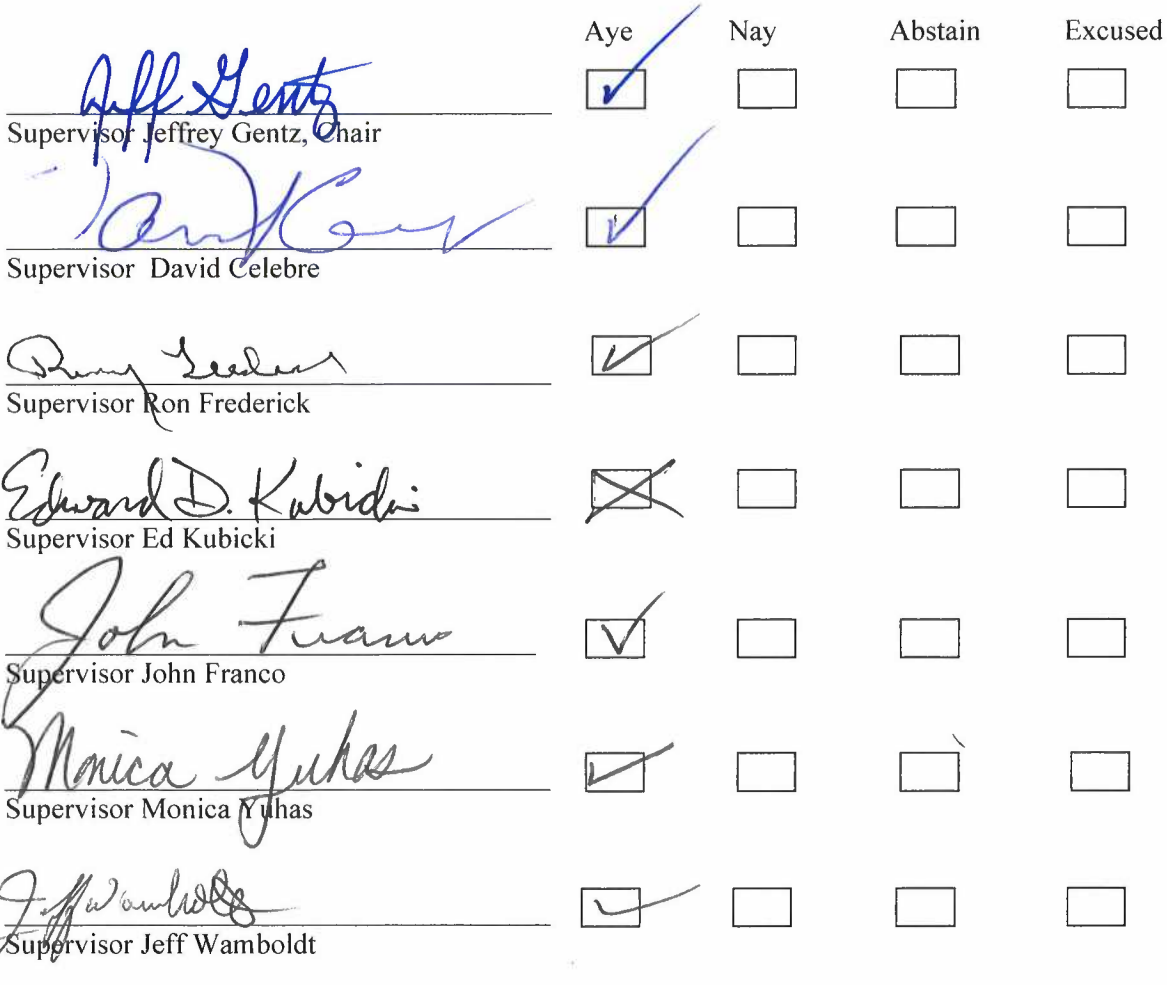 Aye Nay Abstain Excused
Jeff Gentz
Supervisor Jeffrey Gentz, Chair
Supervisor David Celebre
Supervisor Ron Frederick
Edward D. Kubicki
Supervisor Ed Kubicki
John Franco
Supervisor John Franco
Monica Yuhas
Supervisor Monica Yuhas
Jeff Wamboldt
Supervisor Jeff Wamboldt